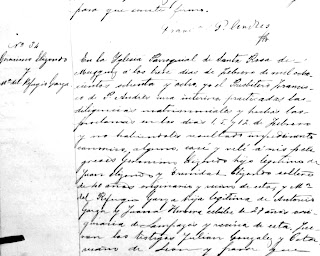 para que conste firmo.
Nº 34
Geronimo Elizondo
y
Mª del Refugio Garza
En la Yglesia Parroquial de Santa Rosa de
a los trece dias de febrero de mil ocho
cientos setenta y ocho, yo el Presbitero Francis-
co P. Andres cura interino practicadas las
diligencias matrimoniales y hechas las
proclamas en los dias 1, 5, y 12 de febrero
y no habiendo resultado impedimento
canonico, alguno, casé y velé á mis feli-
greses Geronimo Elizondo hijo legitimo de
Juan Elizondo y Trinidad Elizondo soltero
de 40 años originario y vecino de esta, y Mª
del Refugio Garza hija legitima de Antonio
Garza y Juana celibe de 27 años ori-
ginaria de Lampazos y vecina de esta, fue-
ron los testigos Julian Gonzales y
de Leon y para que